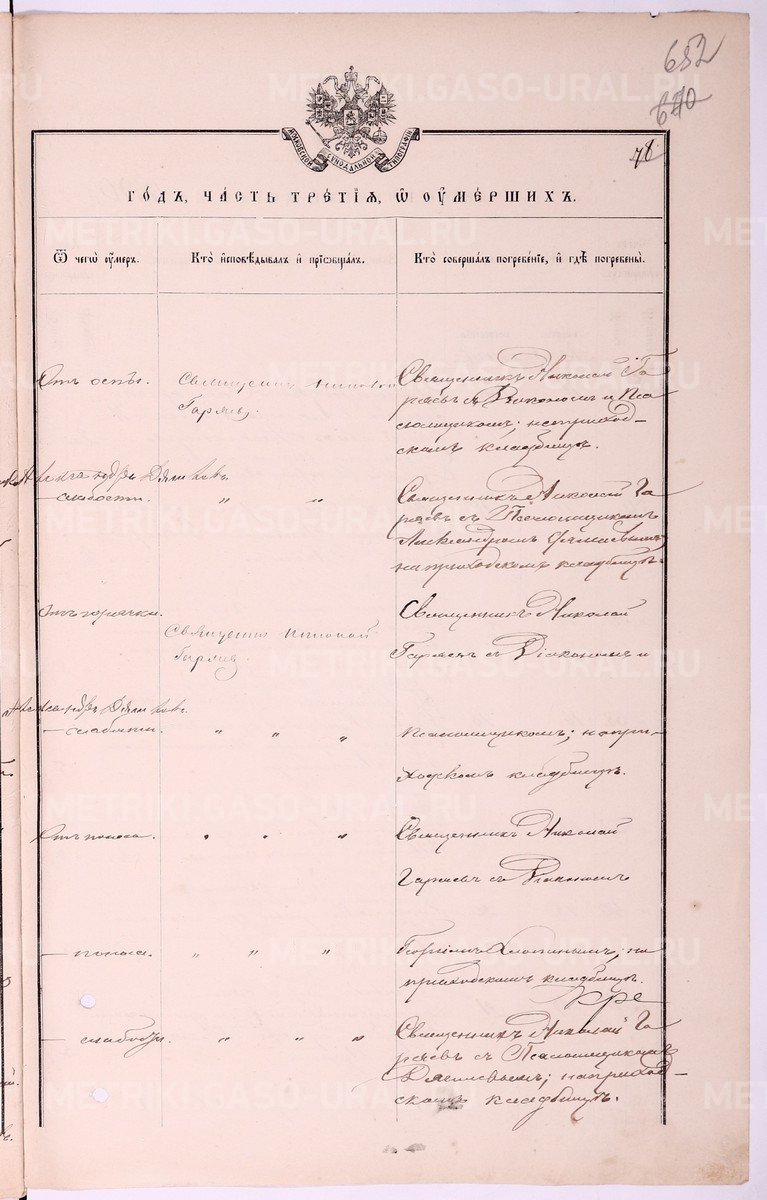 652
670
78
МОСКОВСКОЙ СѴНОДАЛЬНОЙ ТИПОГРАФІИ
ГО́ДЪ, ЧА́СТЬ ТРЕ́ТІѦ, Ѡ҆ ОУ҆МЕ́РШИХЪ.
Ѿ чегѡ̀ оу҆́меръ.
Кто̀ и҆сповѣ́дывалъ и҆ прїѡбща́лъ.
Кто̀ соверша́лъ погребе́нїе, и҆ гдѣ̀ погребены̀.
Отъ оспы.
Священникъ Николай
Гаряевъ,
Священникъ Николай Га-
ряевъ съ Діакономъ и Пса-
ломщикомъ; на приход-
скомъ кладбищѣ.
— слабости. " "
Священникъ Николай Га-
ряевъ съ Псаломщикомъ
Александромъ
на приходскомъ кладбищѣ.
Отъ горячки.
Священникъ Николай
Гаряевъ.
Священникъ Николай
Гаряевъ съ Діакономъ и
— слабости. " " "
Псаломщикомъ; на при-
ходскомъ кладбищѣ.
Отъ поноса. " " "
Священникъ Николай
Гаряевъ съ Діакономъ
— поноса. " " "
Георгіемъ на
приходскомъ кладбищѣ.
— слабости. " " "
Священникъ Николай Га-
ряевъ съ Псаломщикомъ
на приход-
скомъ кладбищѣ.
METRIKI.GASO-URAL.RU